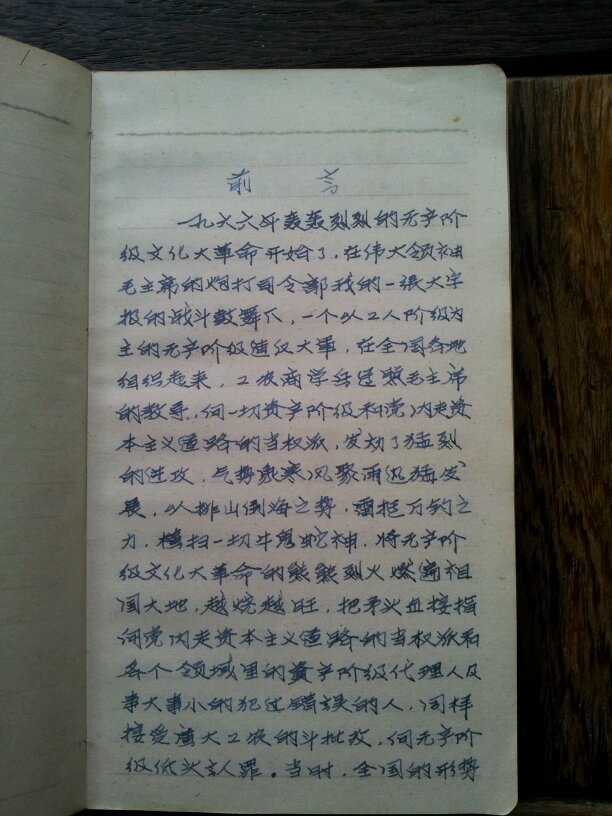 前言
一九六六年轰轰烈烈的无产阶
级文化大革命开始了，在伟大领袖
毛主席的炮打司令部我的一張大字
报的战斗鼓舞下，一个以工人阶级为
主的无产阶级造反大軍，在全国各地
组织起来，工农商学兵遵照毛主席
的教导，向一切资产阶级和党内走资
本主义道路的当权派，发动了猛烈
的进攻，气势象寒风聚雨迅猛发
展，以排山倒海之势，雷挺万钧之
力，横扫一切牛鬼蛇神，将无产阶
级文化大革命的熊熊烈火燃遍祖
国大地，越烧越旺，把矛头直接指
向党内走资本主义道路的当权派和
各个领域里的資产阶级代理人及
事大事小的犯过錯误的人，同样
接受广大工农的斗批改，向无产阶
级低头认罪。当时，全国的形势